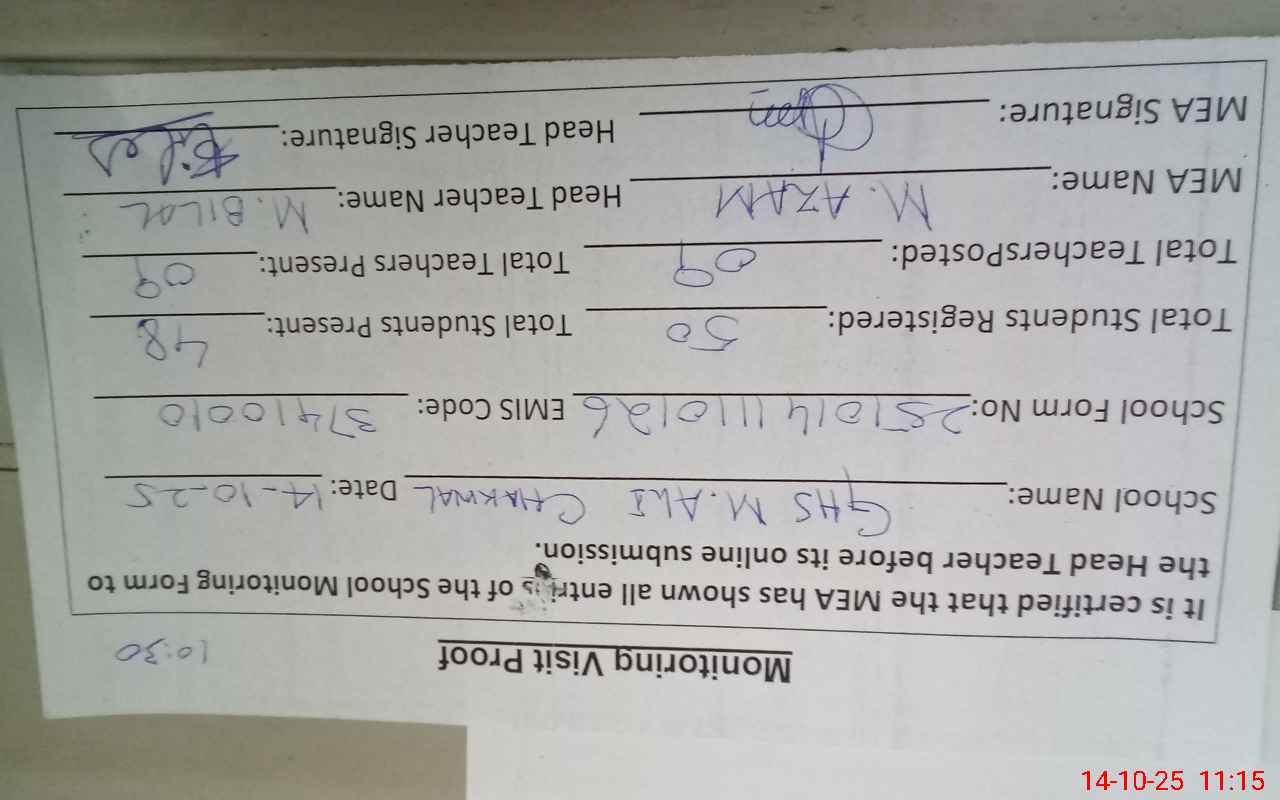 Monitoring Visit Proof 10:30
It is certified that the MEA has shown all entries of the School Monitoring Form to
the Head Teacher before its online submission.
School Name: GHS M. ALI CHAKWAL Date: 14-10-25
School Form No: 2510141110126 EMIS Code: 37410010
Total Students Registered: 50 Total Students Present: 48
Total TeachersPosted: 09 Total Teachers Present: 09
MEA Name: M. AZAM Head Teacher Name: M. BILAL
MEA Signature: Head Teacher Signature:
14-10-25 11:15